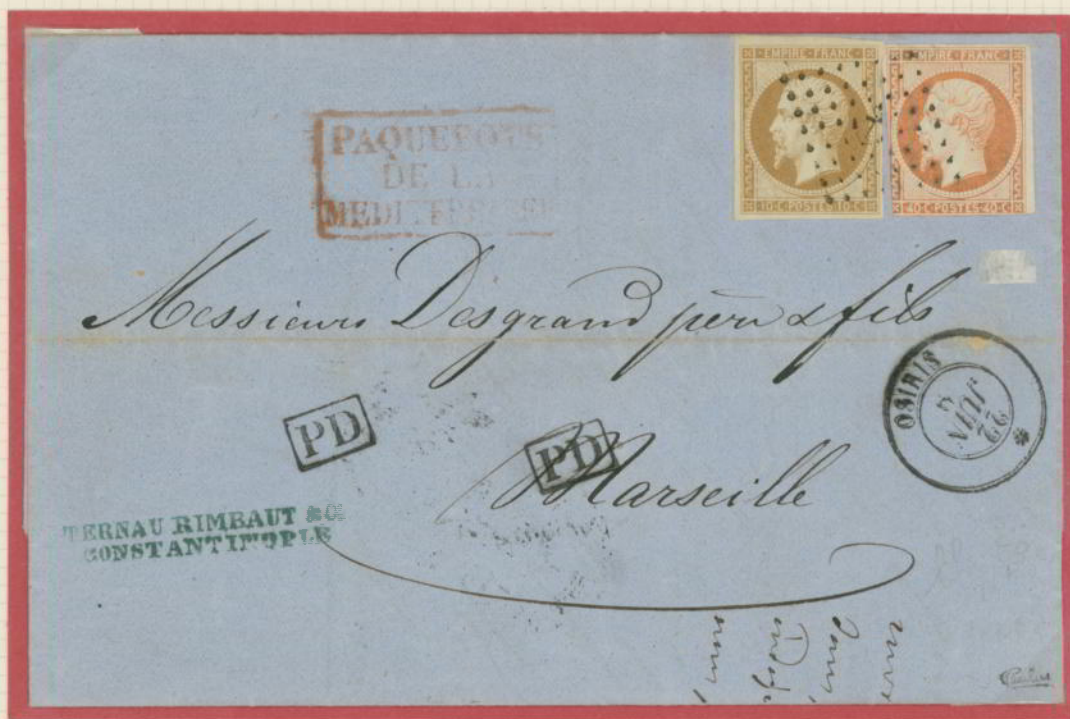 EMPIRE FRANC
10·C·POSTES·10·C
EMPIRE FRANC
40·C·POSTES·40·C
PAQUEBOTS
DE LA
MEDITERRANEE
Messieurs Desgrand père & fils
Marseille
OSIRIS
22
JUIN
PD
PD
TERNAU RIMBAUT & C
CONSTANTINOPLE